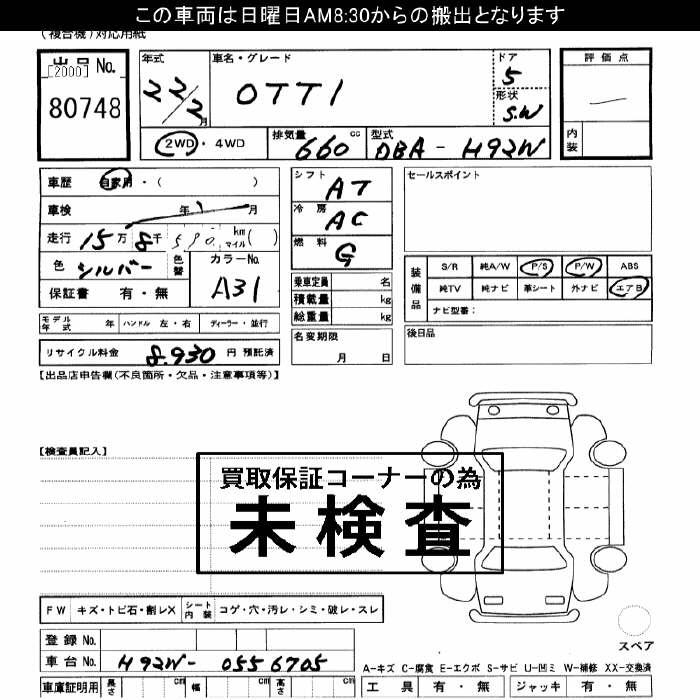 この車両は日曜日AM8:30からの搬出となります
(複合機)対応用紙
出品 No.
[2000]
80748
年式
22/2
月
車名・グレード
OTTI
ドア
5
形状
S.W
2WD ・ 4WD
排気量
660 cc
型式
DBA - H92W
評価点
内装
車歴 自家用 ・( )
車検 年 月
走行 15万 8千 590 km マイル ( )
色 シルバー 色替 カラーNo.
A31
保証書 有・無
シフト
AT
冷房
AC
燃料
G
乗車定員 名
積載量 kg
総重量 kg
名変期限
月 日
セールスポイント
装備品
S/R 純A/W P/S P/W ABS
純TV 純ナビ 革シート 外ナビ エアB
ナビ型番：
後日品
モデル年式 年 ハンドル 左・右 ディーラー・並行
リサイクル料金 8,930 円 預託済
【出品店申告欄(不良箇所・欠品・注意事項等)】
【検査員記入】
買取保証コーナーの為
未検査
FW キズ・トビ石・割レX シート内装 コゲ・穴・汚レ・シミ・破レ・スレ
登録 No.
車台 No. H92W- 0556705
車庫証明用 長さ cm 幅 cm 高さ cm
スペア
A-キズ C-腐食 E-エクボ S-サビ U-凹ミ W-補修 XX-交換済
工具 有・無 ジャッキ 有・無